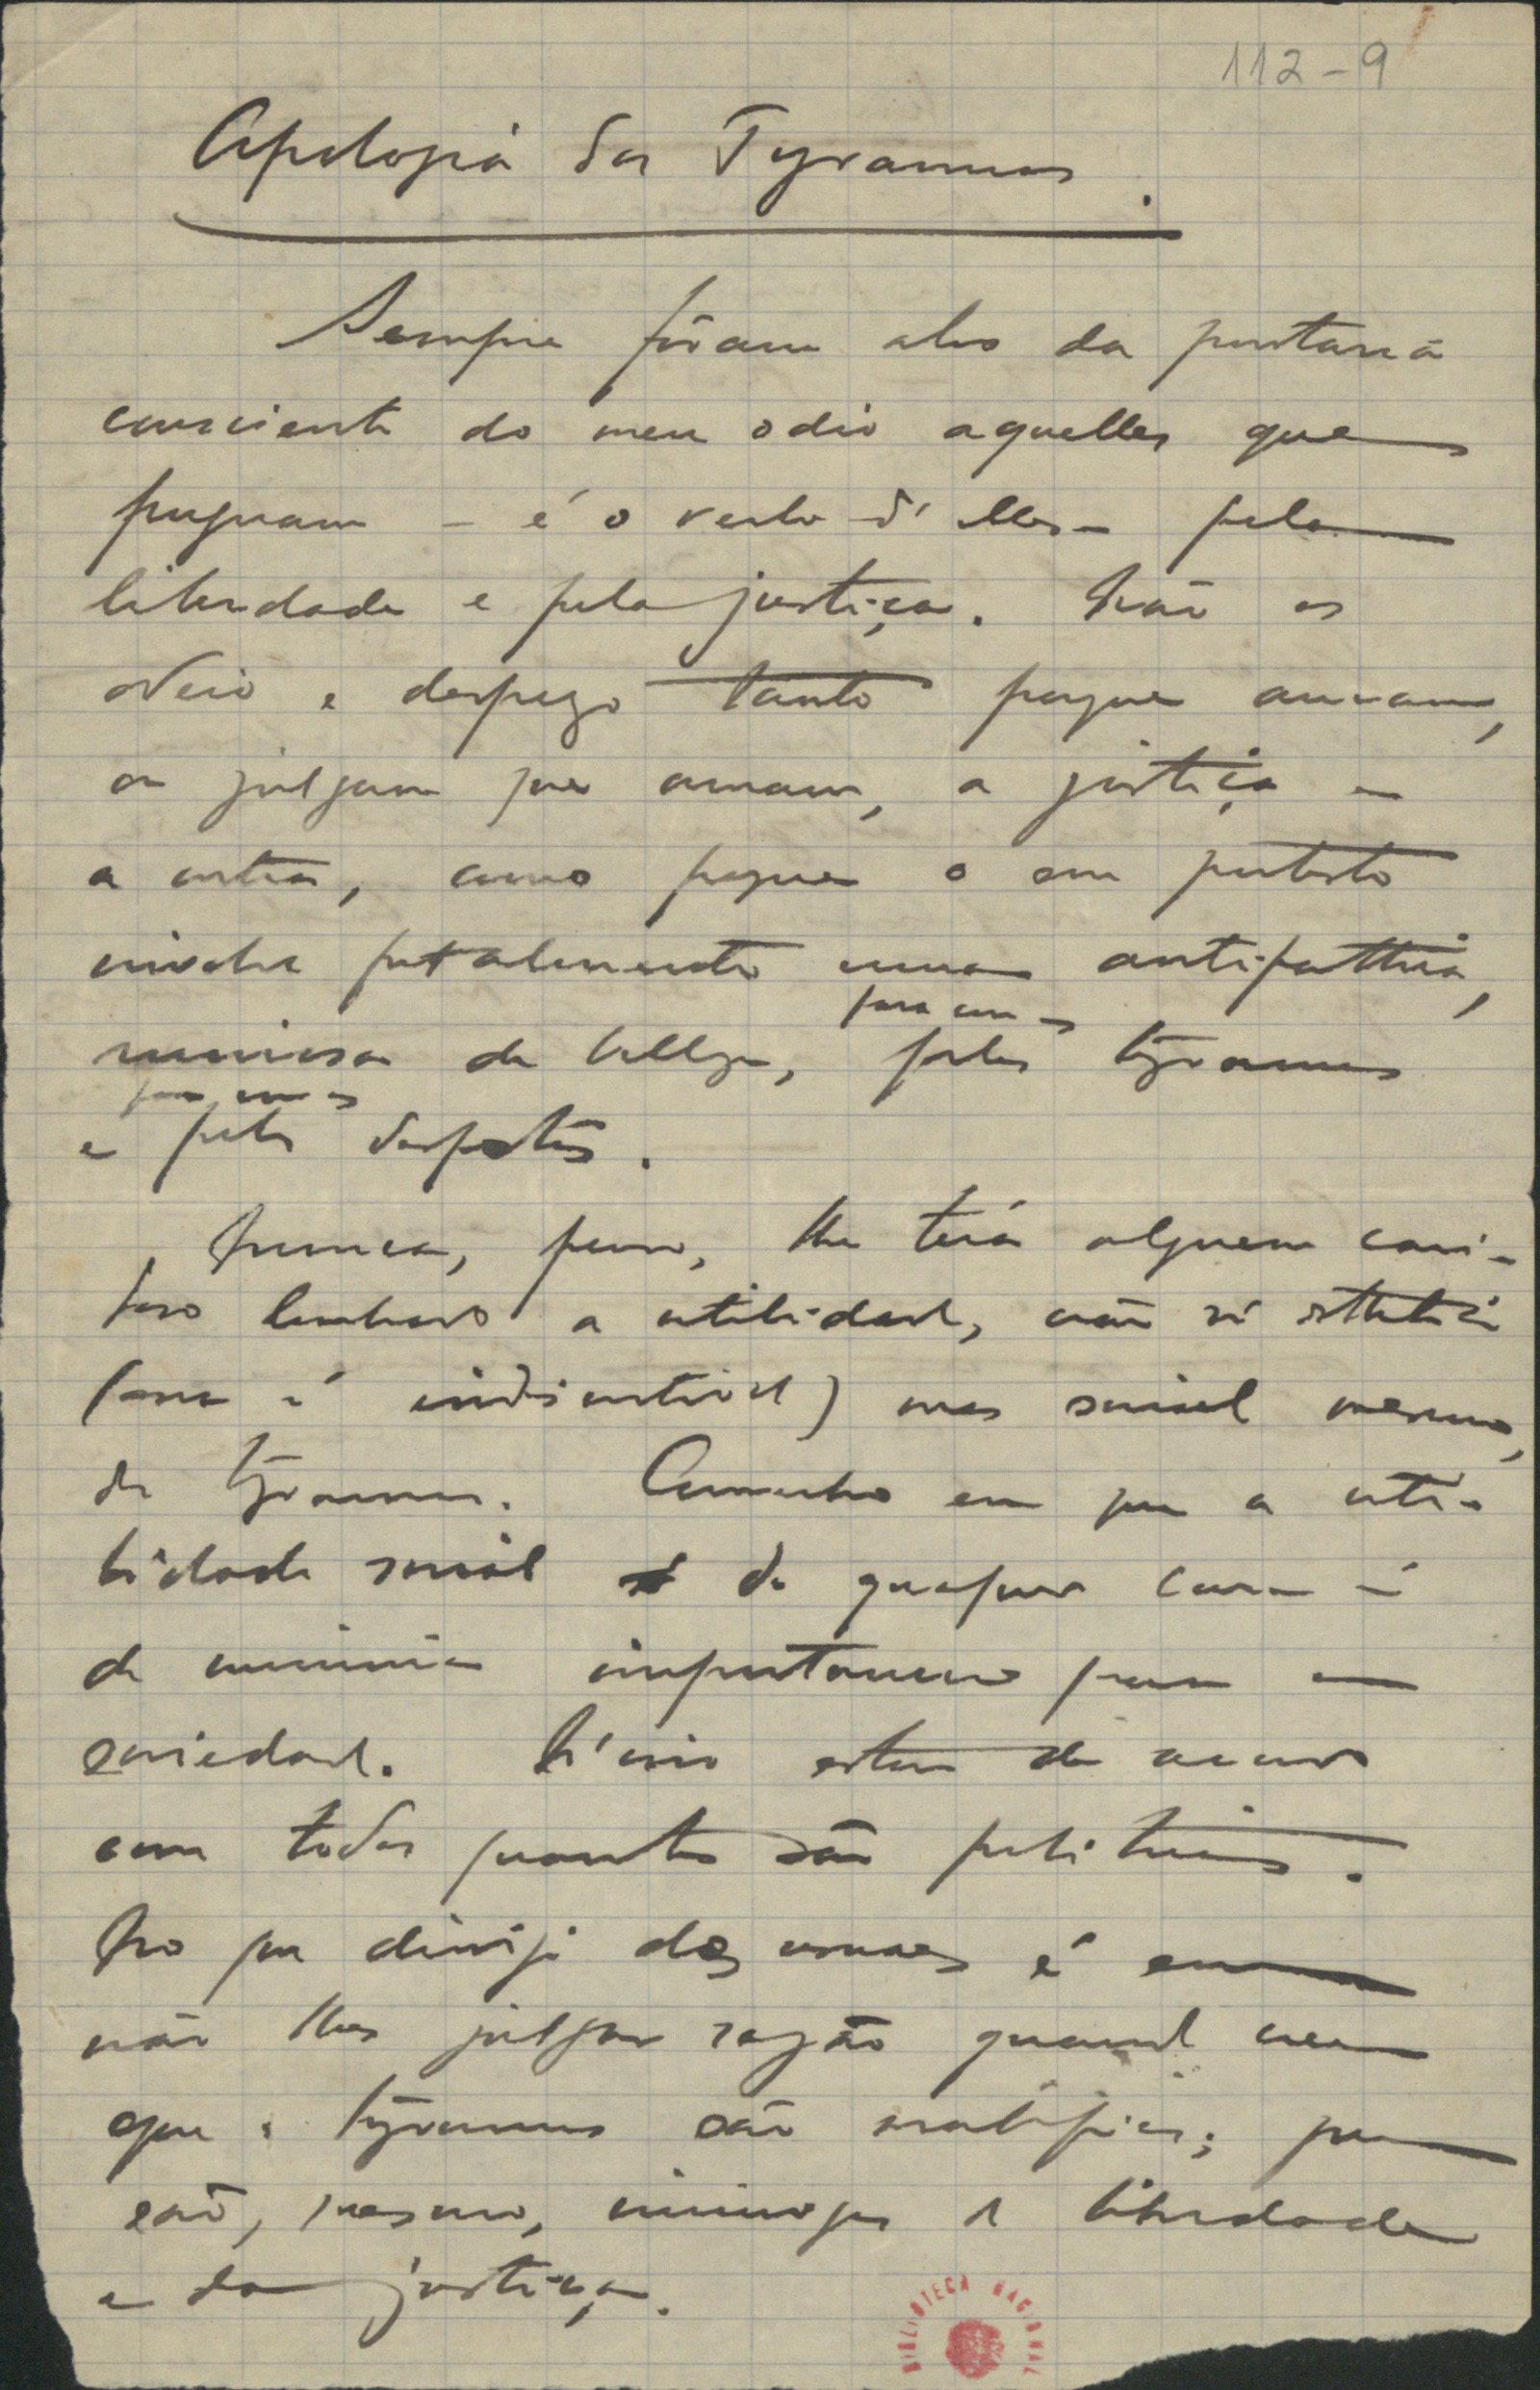 112-9
Apologia dos Tyrannos.
Sempre fôram alvo da pontaria
consciente do meu odio aquelles que
pugnam — é o verbo d'elles — pela
liberdade e pela justiça. Não os
odeio e desprezo tanto porque amam,
ou julgam que amam, a justiça e
a outra, como porque o em
involve fatalmente uma antipathia,
de belleza,
para com os
pelos tyrannos
para com os
e pelos despotas.
Nunca, porem, lhe terá alguem cari-
toso lembrado a utilidade, não só esthetica
(essa é indiscutivel) mas social mesmo,
dos tyrannos. Concordo em que a uti-
lidade social de qualquer cousa é
de minima importancia para a
sociedade. N'isso estou de accordo
com todos quantos são politicos.
No que divirjo dos mesmos é em
não lhes julgar razão quando creem
que os tyrannos são maleficos; que
são, mesmo, inimigos da liberdade
e da justiça.
BIBLIOTECA NACIONAL